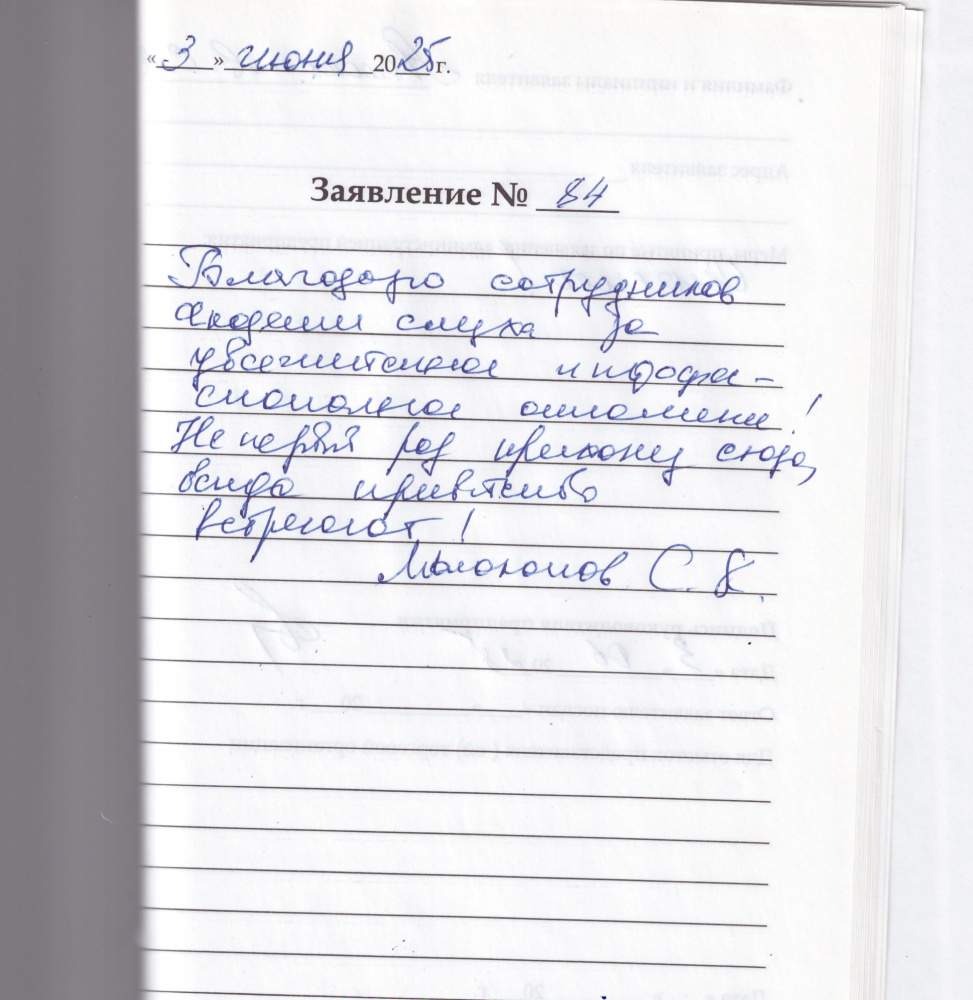 «3» июня 2025г.
Заявление № 84
Благодарю сотрудников
Академии слуха за
уважительное и профес-
сиональное отношение!
Не первый раз прихожу сюда,
всегда приветливо
встречают!
С. К.